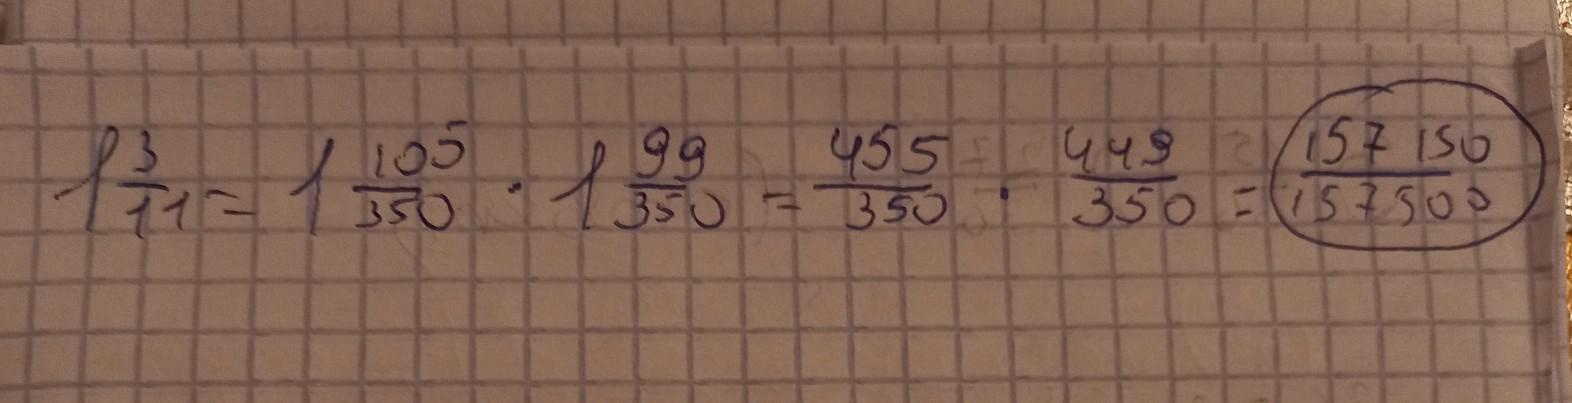 1 3/11 = 1 105/350 · 1 99/350 = 455/350 · 449/350 = 157 150/157 500